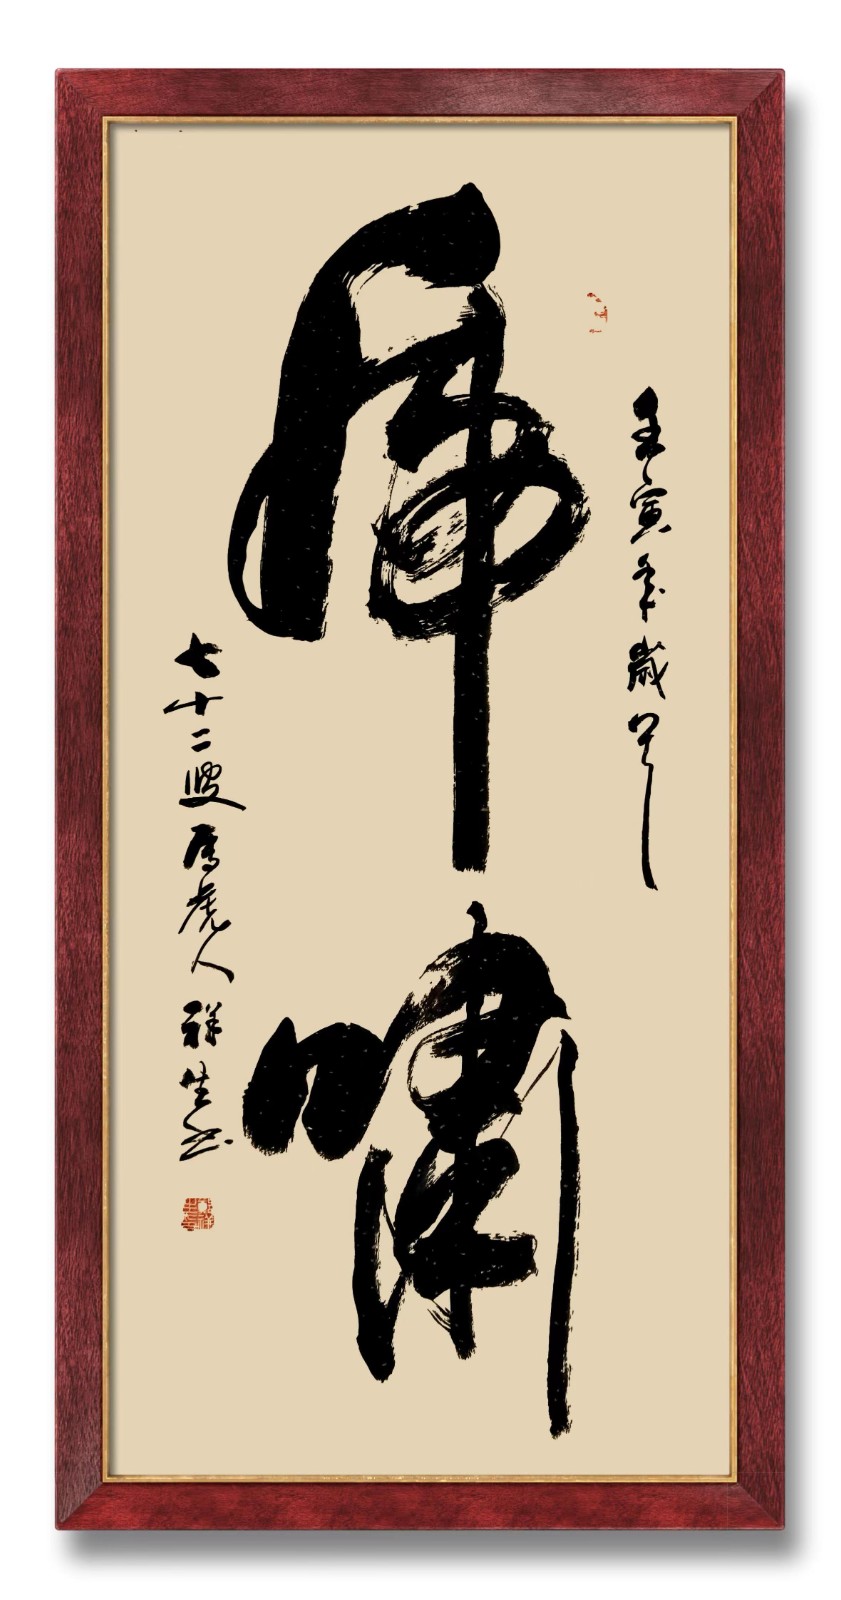 虎啸
壬寅年岁首
七十二叟属虎人祥生书